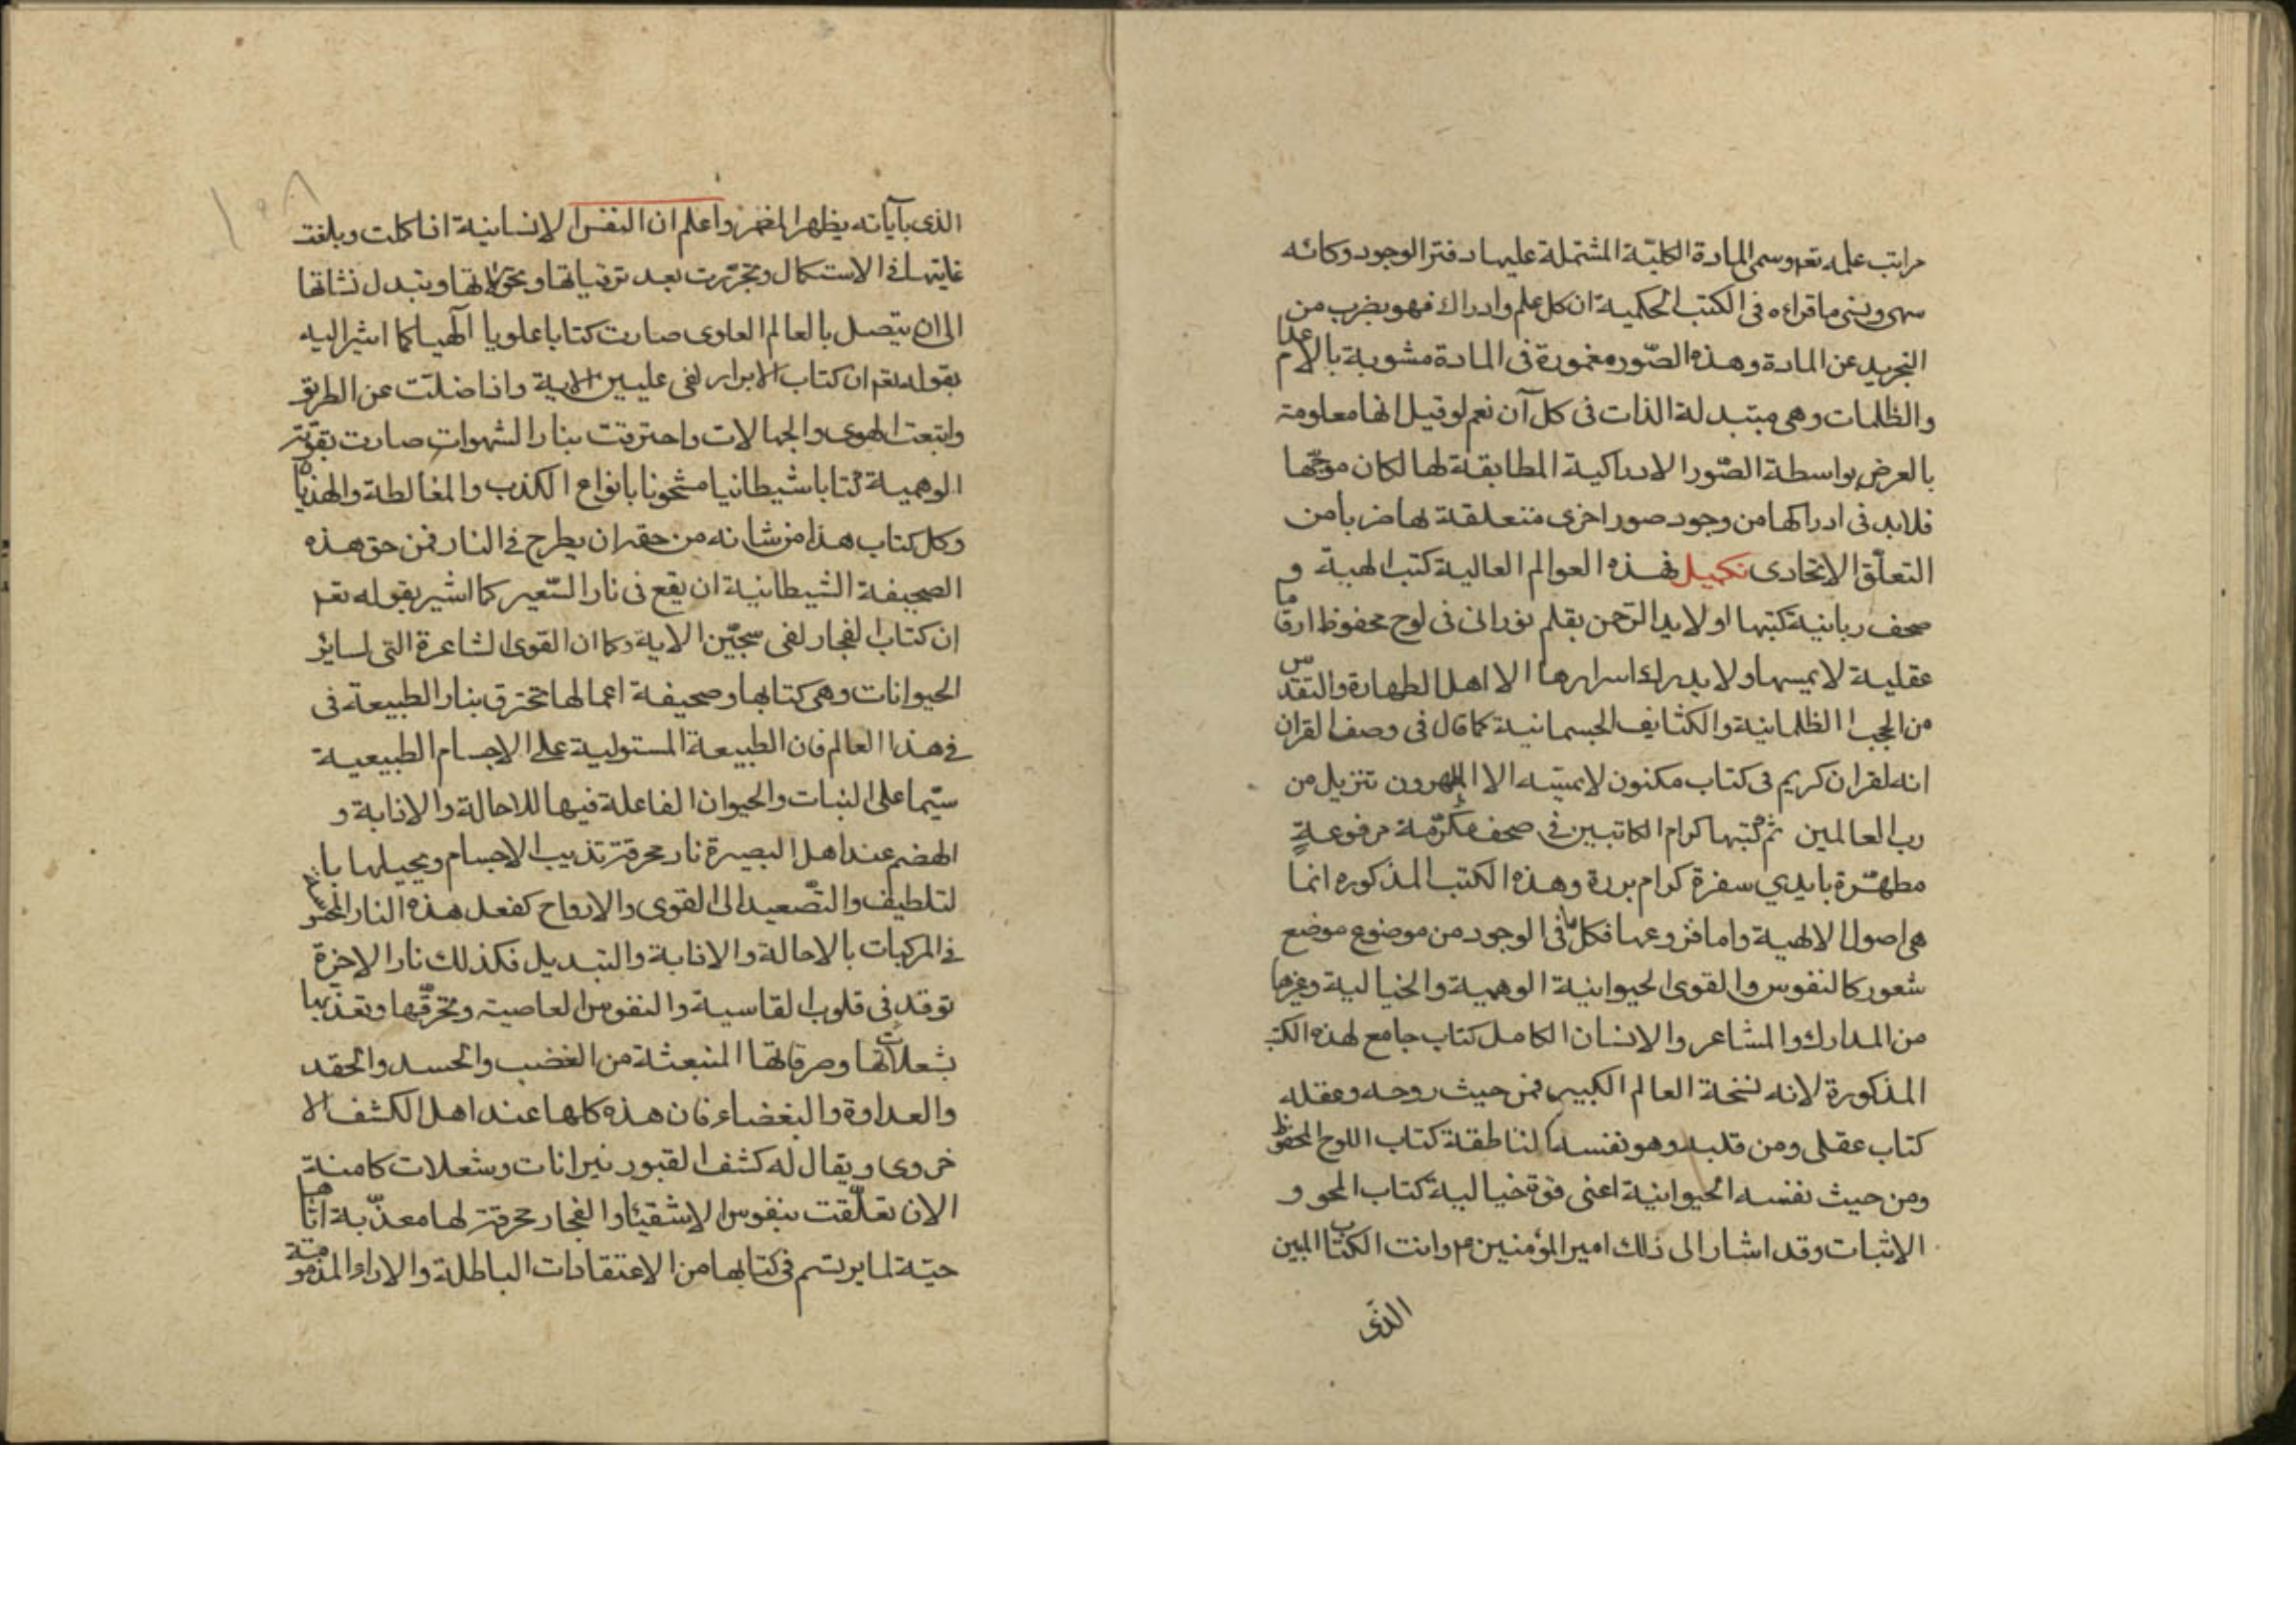 مراتب علمه تعم وسمى المادة الكليّة المشتملة عليها دفتر الوجود وكانه
سهى ونسى ما قراءه فى الكتب الحكمية ان كل علم وادراك فهو بضرب من
التجريد عن المادة وهذه الصّور مغمورة فى المادة مشوبة بالاعدام
والظلمات وهى متبدلة الذات فى كل آن نعم لو قيل انها معلومة
بالعرض بواسطة الصّور الادراكية المطابقة لها لكان موجّها
فلابد فى ادراكها من وجود صور اخرى متعلقة بها ضربا من
التعلّق الاتحادى تكميل فهذه العوالم العالية كتب الهية و
صحف ربانية كتبها اولا يد الرّحمن بقلم نورانى فى لوح محفوظ ارقاما
عقلية لا يمسها ولا يدرك اسرارها الا اهل الطهارة والتقدّس
من الحجب الظلمانية والكثايف الجسمانية كما قال فى وصف القران
انه لقران كريم فى كتاب مكنون لا يمسّه الا المطهرون تنزيل من
رب العالمين ثم كتبها كرام الكاتبين فى صحف مكرّمة مرفوعةٍ
مطهّرة بايدي سفرة كرام بررة وهذه الكتب المذكوره انما
هى اصول الالهية واما فروعها فكل ما فى الوجود من موضوع موضع
شعور كالنفوس والقوى الحيوانية الوهمية والخيالية وغيرها
من المدارك والمشاعر والانسان الكامل كتاب جامع لهذه الكتب
المذكورة لانه نسخة العالم الكبير فمن حيث روحه وعقله
كتاب عقلى ومن قلبه وهو نفسه الناطقة كتاب اللوح المحفوظ
ومن حيث نفسه الحيوانية اعنى قوة خيالية كتاب المحو و
الاثبات وقد اشار الى ذلك امير المؤمنين ع م وانت الكتاب المبين
الذّى
١٥٨
الذى بآياته يظهر المضمر واعلم ان النفس الانسانية اذا كملت وبلغت
غايتها فى الاستكمال وتجرّدت بعد ترقياتها وتحوّلاتها وتبدل نشاتها
الى ان يتصل بالعالم العلوى صارت كتابا علويا آلهيا كما اشير اليه
بقوله تعم ان كتاب الابرار لفى عليين الاية واذا ضلّت عن الطريق
واتبعت الهوى والجهالات واحترقت بنار الشهوات صارت بقوّته
الوهمية كتابا شيطانيا مشحونا بانواع الكذب والمغالطة والهذيان
وكل كتاب هذا من شانه من حقه ان يطرح فى النار فمن حق هذه
الصحيفة الشيطانية ان يقع فى نار السّعير كما اشير بقوله تعم
ان كتاب الفجار لفى سجّين الاية وكما ان القوى الشاعرة التى لساير
الحيوانات وهى كتابها وصحيفة اعمالها تحترق بنار الطبيعة فى
فى هذا العالم فان الطبيعة المستولية على الاجسام الطبيعية
سيّما على النبات والحيوان الفاعلة فيها للاحالة والاذابة و
الهضم عند اهل البصيرة نار محرقة تذيب الاجسام ويحيلها با
لتلطيف والتّصعيد الى القوى والارواح كفعل هذه النار المحسوسة
فى المركبات بالاحالة والاذابة والتبديل فكذلك نار الاخرة
توقد فى قلوب القاسية والنفوس العاصية وتحرّقها وتعذّبها
بشعلاتها وحرقاتها المنبعثة من الغضب والحسد والحقد
والعداوة والبغضاء فان هذه كلها عند اهل الكشف الا
خروى ويقال له كشف القبور نيرانات وشعلات كامنة
الان تعلّقت بنفوس الاشقياء والفجار محرقة لها معذّبة اياها
حيّة لما يرتسم فى كتابها من الاعتقادات الباطلة والاراء المذمومة